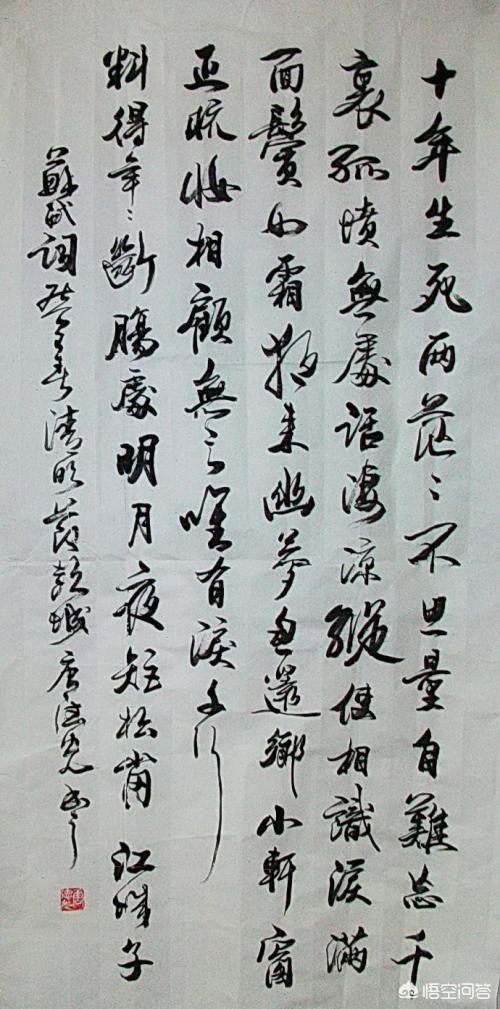 十年生死兩茫〻不思量自難忘千
裏孤墳無處話淒涼縱使相識淚滿
面鬢如霜夜來幽夢忽還鄉小軒窗
正梳妝相顧無言唯有淚千行
料得年〻斷腸處明月夜短松崗 江城子
蘇軾詞 清明 城 書
悟空问答